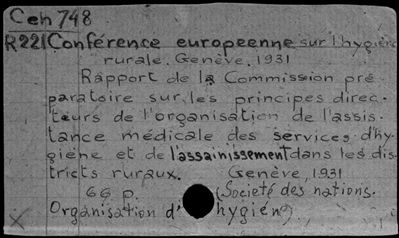 Ceh 748
R221 Conférence europeenne sur l'hygiène
rurale. Genève, 1931
Rapport de la Commission pré-
paratoire sur les principes direc-
teurs de l'organisation de l'assis-
tance médicale des services d'hy-
giène et de l'assainissement dans les dis-
tricts ruraux. Genève, 1931
66 p. (Societé des nations.
Organisation d'hygiène)